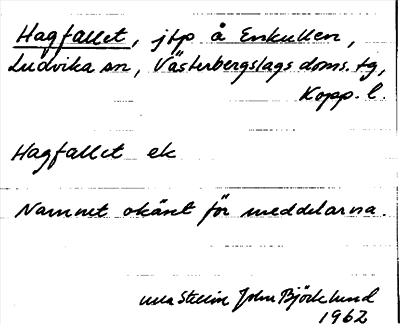 Hagfallet, jtp å Enkullen,
Ludvika sn, Västerbergslags doms. tg,
Kopp. l.
Hagfallet ek
Namnet okänt för meddelarna.
John Björklund
1962